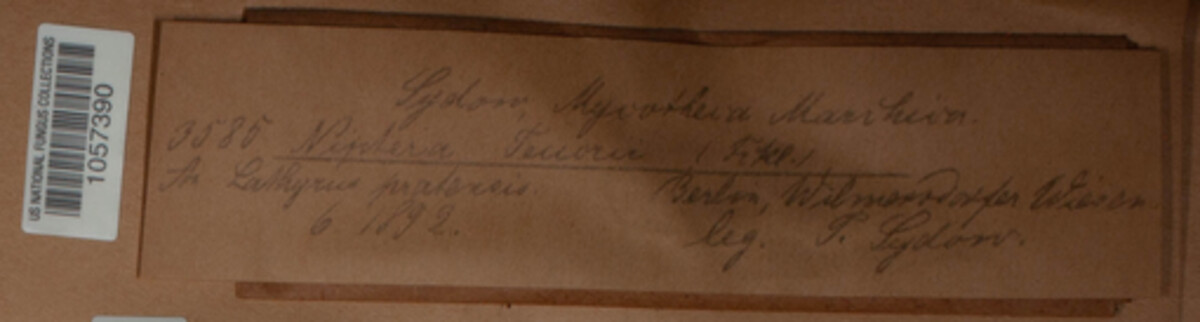 US NATIONAL FUNGUS COLLECTIONS
1057390
Sydow, Mycotheca Marchica.
3585 Niptera (Fckl.)
An Lathyrus pratensis. Berlin, Wilmersdorfer Wiesen
6. 1892. leg. P. Sydow.